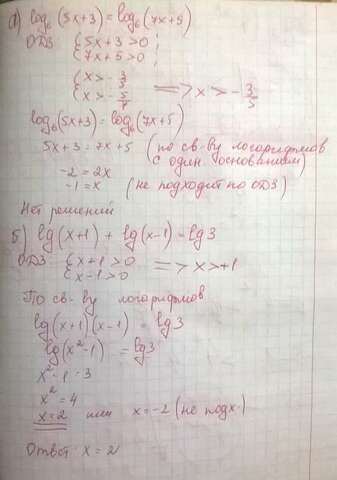 а) log₆(5x+3) = log₆(7x+5)
ОДЗ {5x+3>0 ;
{7x+5>0 ;
{x > -3/5
{x > -5/7 => x > -3/5
log₆(5x+3) = log₆(7x+5)
5x+3 = 7x+5 (по св-ву логарифмов
с один. основанием)
-2 = 2x
-1 = x (не подходит по ОДЗ)
Нет решений
б) lg(x+1) + lg(x-1) = lg3
ОДЗ {x+1>0
{x-1>0 => x>+1
По св-ву логарифмов
lg(x+1)(x-1) = lg3
lg(x²-1) = lg3
x²-1=3
x²=4
x=2 или x=-2 (не подх.)
Ответ: x=2